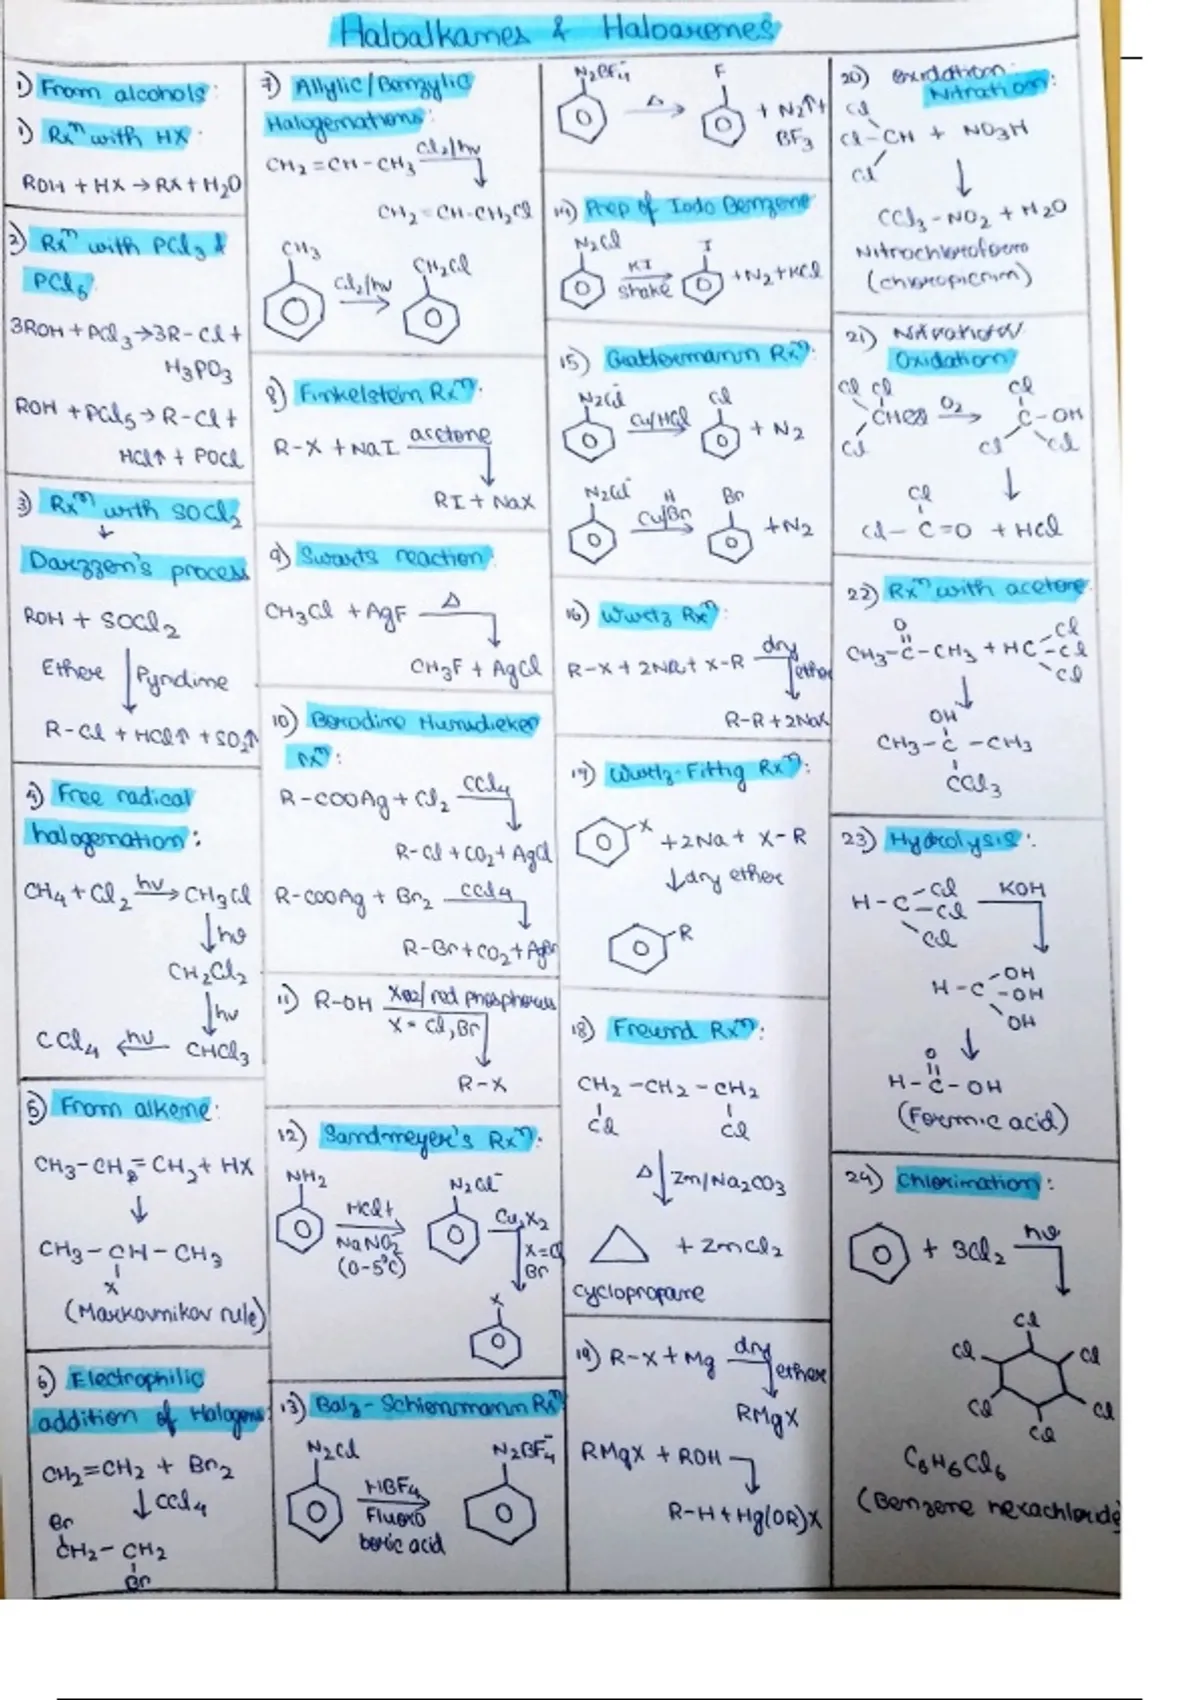 Haloalkanes & Haloarenes
1) From alcohols:
1) Rxⁿ with HX:
ROH + HX → RX + H₂O
2) Rxⁿ with PCl₃ &
PCl₅:
3ROH + PCl₃ → 3R-Cl +
H₃PO₃
ROH + PCl₅ → R-Cl +
HCl↑ + POCl
3) Rxⁿ with SOCl₂
↓
Darzzen's process
ROH + SOCl₂
Ether ↓ Pyridine
R-Cl + HCl↑ + SO₂↑
4) Free radical
halogenation:
CH₄ + Cl₂ hν→ CH₃Cl
↓hν
CH₂Cl₂
↓hν
CCl₄ ←hν CHCl₃
5) From alkene:
CH₃-CH=CH₂ + HX
↓
CH₃-CH-CH₃
X
(Markovnikov rule)
6) Electrophilic
addition of Halogens:
CH₂=CH₂ + Br₂
↓ CCl₄
Br
CH₂-CH₂
Br
7) Allylic/Benzylic
Halogenations:
CH₂=CH-CH₃ Cl₂/hν
↓
CH₂=CH-CH₂Cl
CH₃ CH₂Cl
Cl₂/hν →
8) Finkelstein Rxⁿ:
R-X + NaI acetone
↓
RI + NaX
9) Swarts reaction:
CH₃Cl + AgF Δ
↓
CH₃F + AgCl
10) Borodine Hunsdieker
rxⁿ:
R-COOAg + Cl₂ CCl₄
↓
R-Cl + CO₂ + AgCl
R-COOAg + Br₂ CCl₄
↓
R-Br + CO₂ + AgBr
11) R-OH X₂/red phosphorus
X = Cl, Br
↓
R-X
12) Sandmeyer's Rxⁿ:
NH₂ N₂Cl⁻
HCl + → Cu₂X₂
NaNO₂ X=Cl
(0-5°C) Br
X
13) Balz-Schienmann Rxⁿ
N₂Cl N₂BF₄⁻
HBF₄ →
Fluoro
boric acid
N₂BF₄ F
Δ → + N₂↑ +
BF₃
14) Prep of Iodo Benzene
N₂Cl I
KI → + N₂ + KCl
shake
15) Gattermann Rxⁿ:
N₂Cl⁻ Cl
Cu/HCl → + N₂
N₂Cl⁻ H Br
Cu/Br → + N₂
16) Wurtz Rxⁿ:
R-X + 2Na + X-R dry
ether
R-R + 2NaX
17) Wurtz-Fittig Rxⁿ:
X + 2Na + X-R
↓dry ether
R
18) Freund Rxⁿ:
CH₂-CH₂-CH₂
Cl Cl
Δ↓ Zn/Na₂CO₃
+ ZnCl₂
cyclopropane
19) R-X + Mg dry
ether
RMgX
RMgX + ROH
↓
R-H + Hg(OR)X
20) Oxidation
Nitration:
Cl
Cl-CH + NO₃H
Cl
↓
CCl₃-NO₂ + H₂O
Nitrochloroform
(chloropicrin)
21) Nitration
Oxidation
Cl Cl Cl
CHCl O₂ → C-OH
Cl Cl Cl
↓
Cl
Cl-C=O + HCl
22) Rxⁿ with acetone
O Cl
CH₃-C-CH₃ + HC-Cl
Cl
↓
OH
CH₃-C-CH₃
CCl₃
23) Hydrolysis:
H-C-Cl KOH
Cl
Cl
↓
OH
H-C-OH
OH
↓
O
H-C-OH
(Formic acid)
24) Chlorination:
+ 3Cl₂ hν
Cl
Cl Cl
Cl Cl
Cl
C₆H₆Cl₆
(Benzene hexachloride)